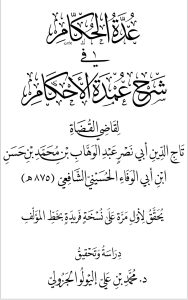 عُدَّةُ الحُكَّامِ
فِي
شَرْحِ عُمْدَةِ الأَحْكَامِ
لِقَاضِي القُضَاةِ
تَاجِ الدِّينِ أَبِي نَصْرٍ عَبْدِ الوَهَّابِ بْنِ مُحَمَّدِ بْنِ حَسَنِ
ابْنِ أَبِي الوَفَاءِ الحُسَيْنِيِّ الشَّافِعِيِّ (٨٧٥ هـ)
يُحَقَّقُ لِأَوَّلِ مَرَّةٍ عَلَى نُسْخَةٍ فَرِيدَةٍ بِخَطِّ المُؤَلِّفِ
دِرَاسَةُ وَتَحْقِيقُ
د. مُحَمَّدِ بْنِ عَلِيٍّ اليُولُو الجَزُولِيِّ